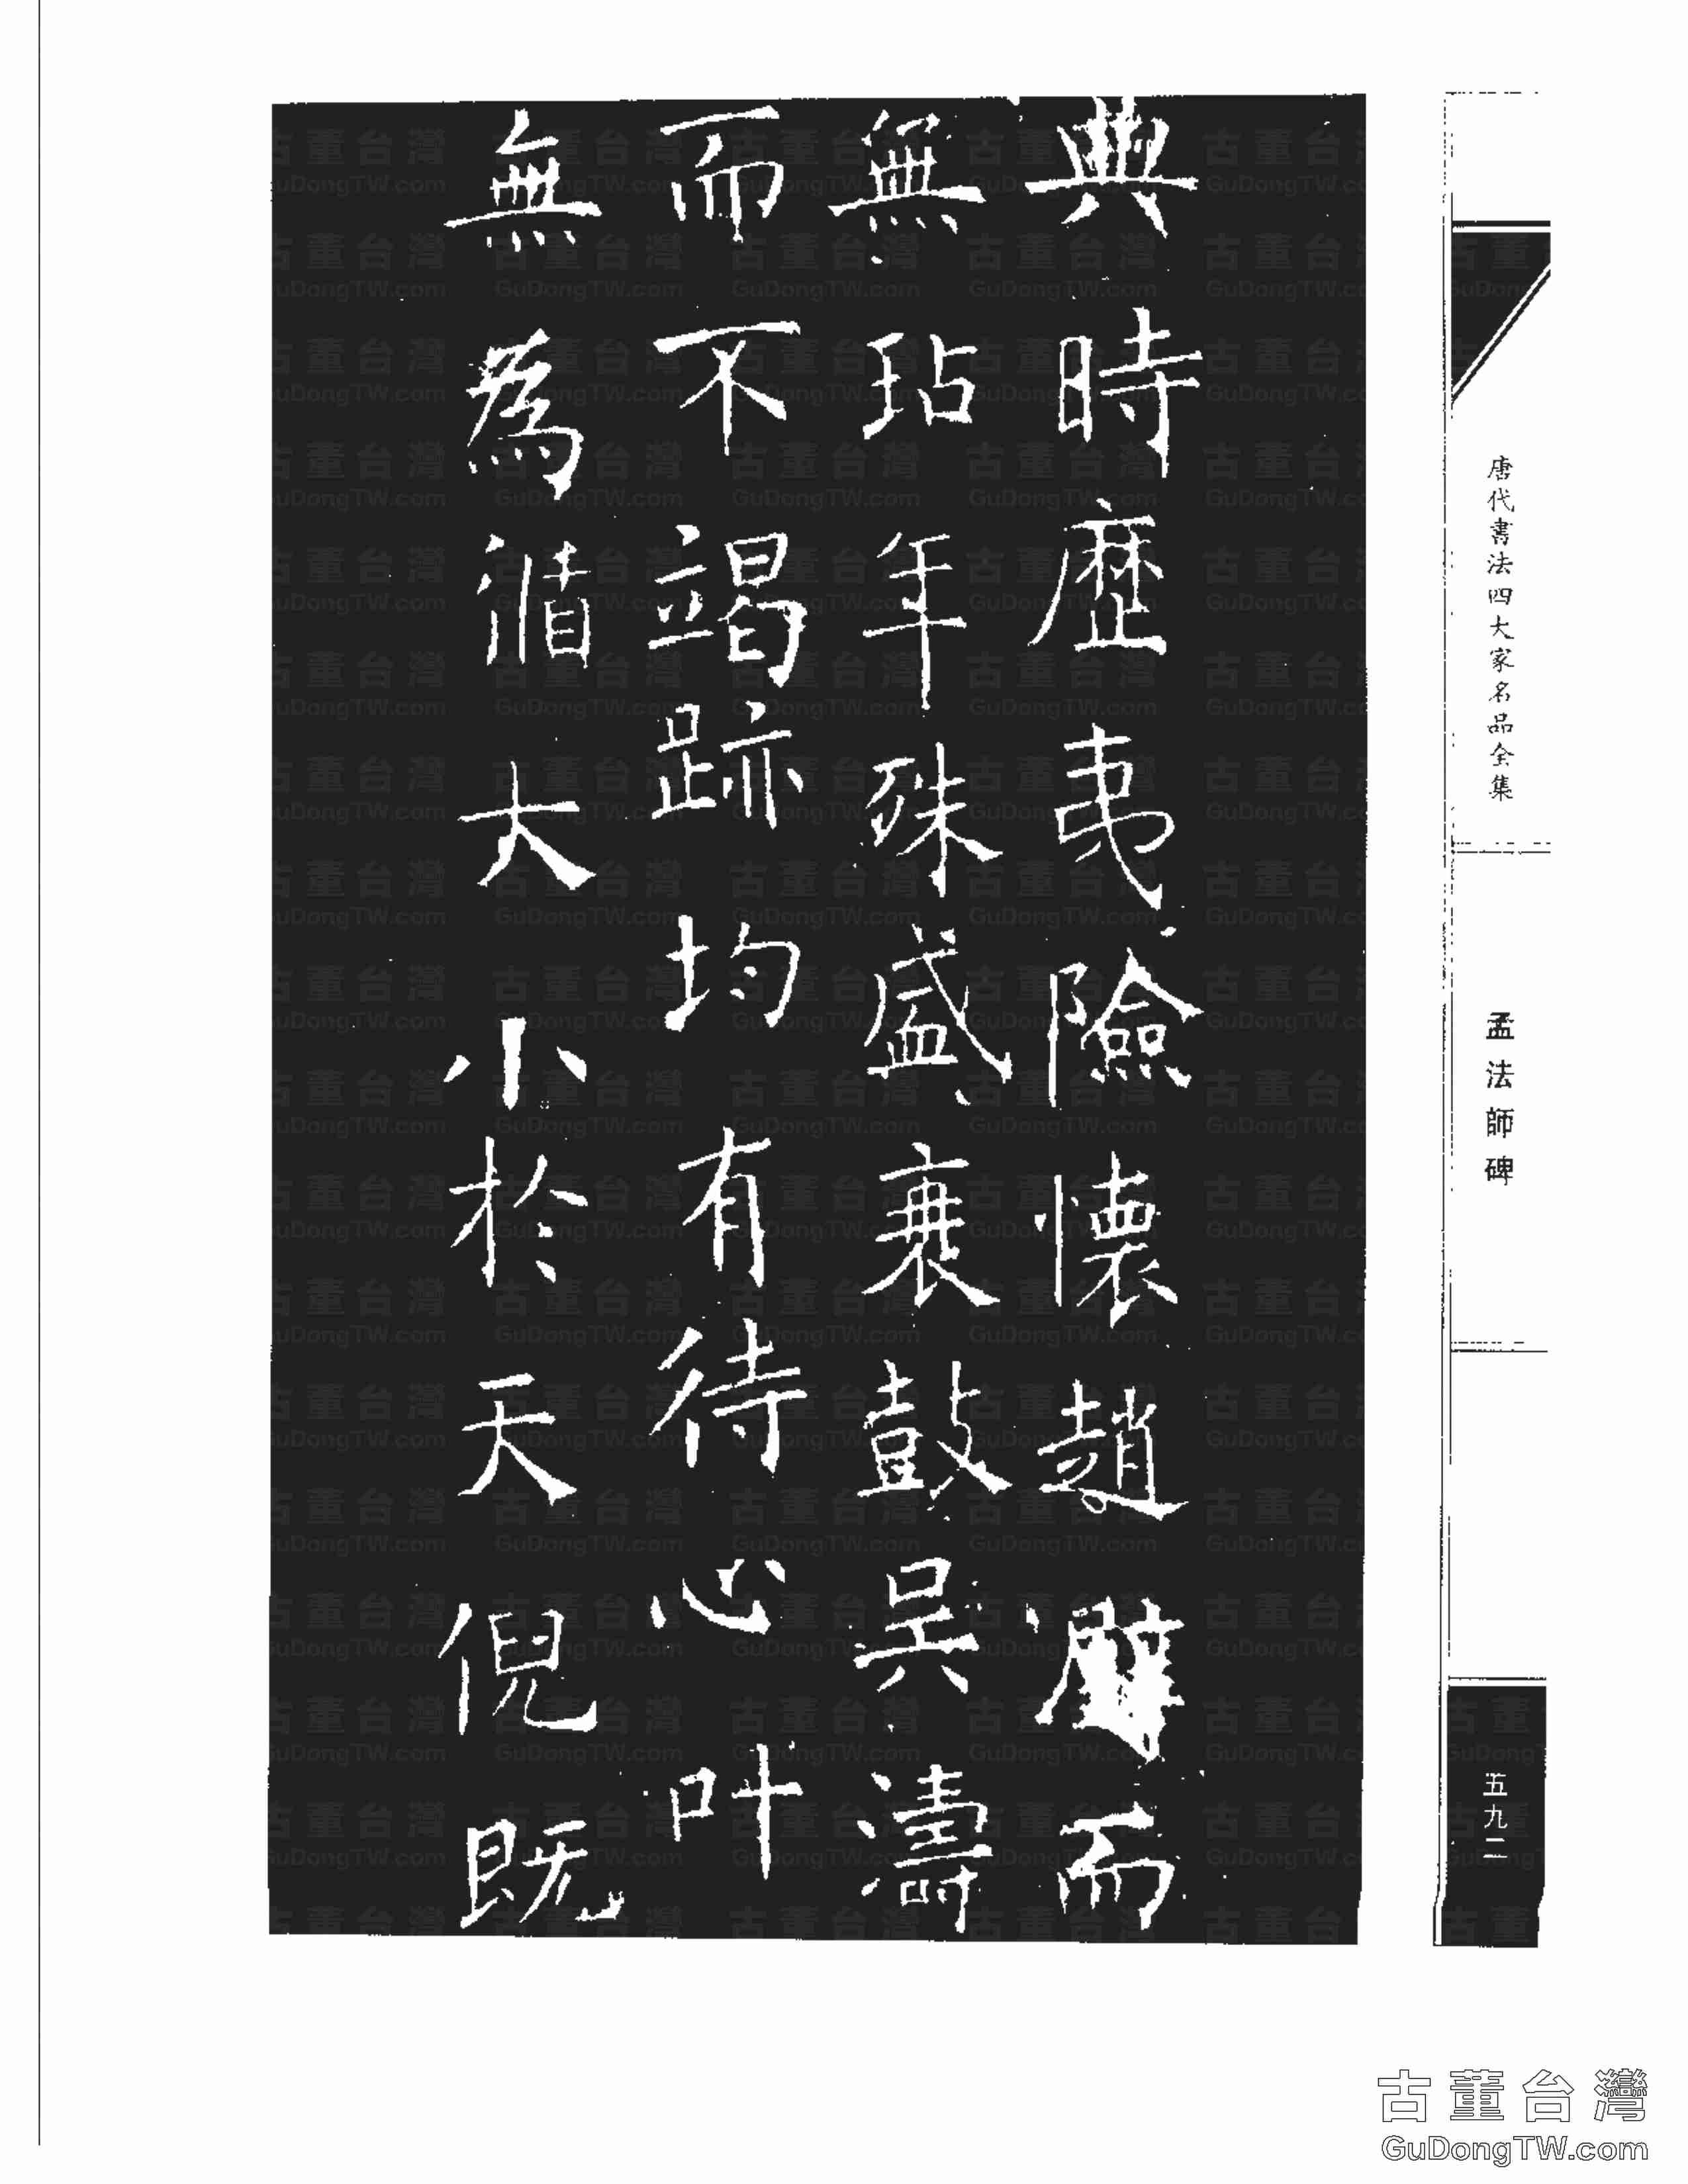 典時歷夷險懷趙璧而
無玷年殊盛衰鼓吴濤
而不竭跡均有待心叶
無為循大小於天倪既
唐代書法四大家名品全集
孟法師碑
五九二
古董台灣
GuDongTW.com